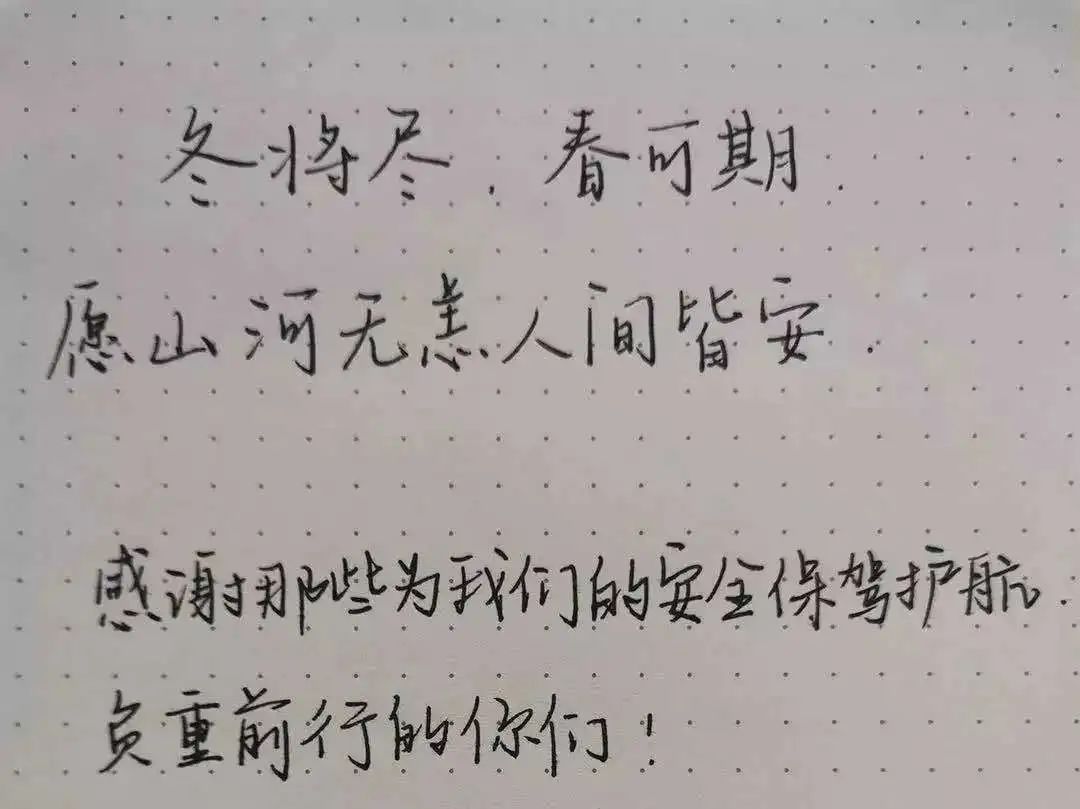 冬将尽.春可期.
愿山河无恙人间皆安.
感谢那些为我们的安全保驾护航.
负重前行的你们!